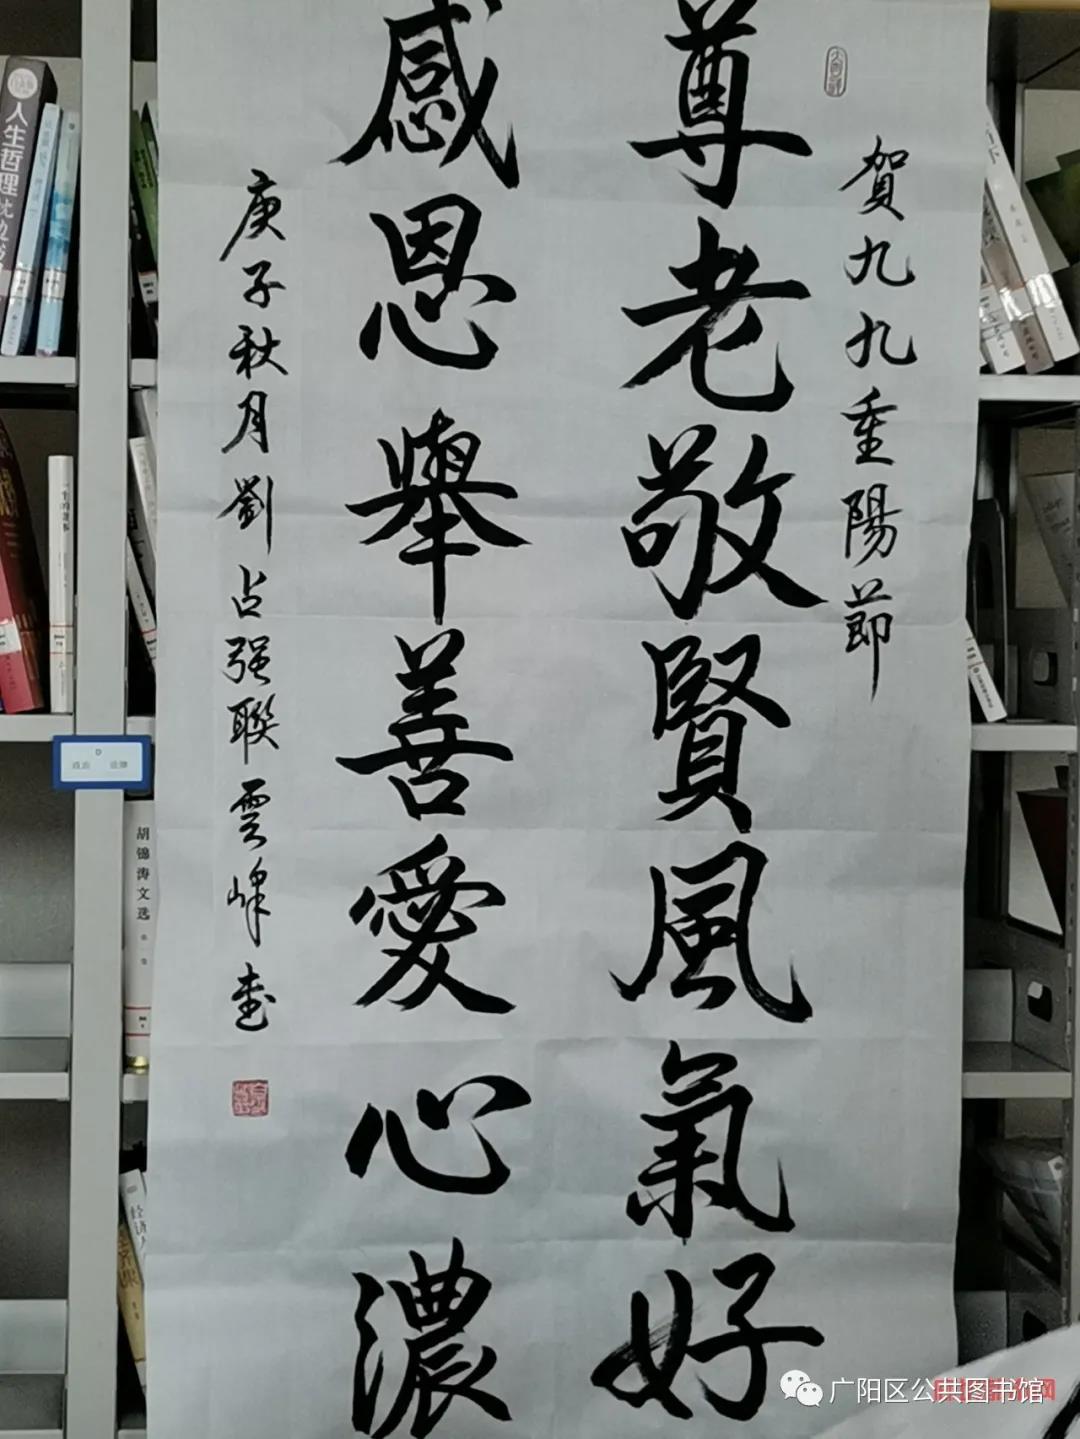 賀九九重陽節
尊老敬賢風氣好
感恩舉善愛心濃
庚子秋月劉占强聯雲峰书
人生哲理
胡锦涛文选
D
广阳区公共图书馆